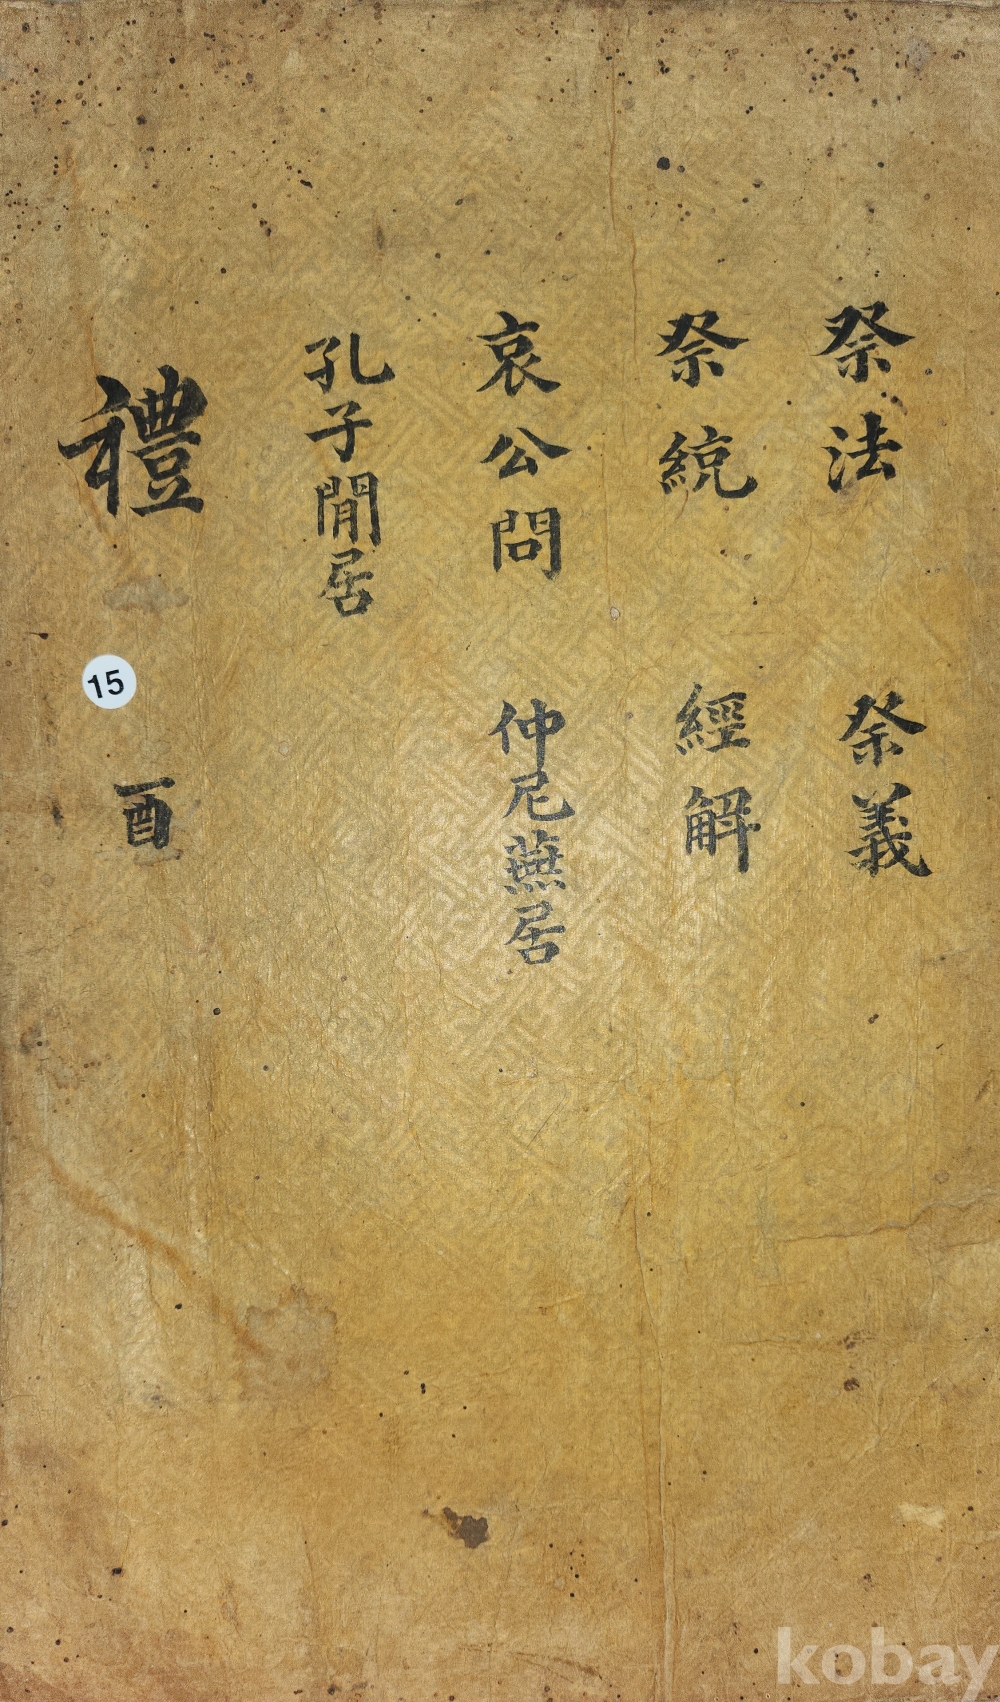 祭法 祭義
祭統 經解
哀公問 仲尼蕪居
孔子閒居
禮 酉
15
kobay